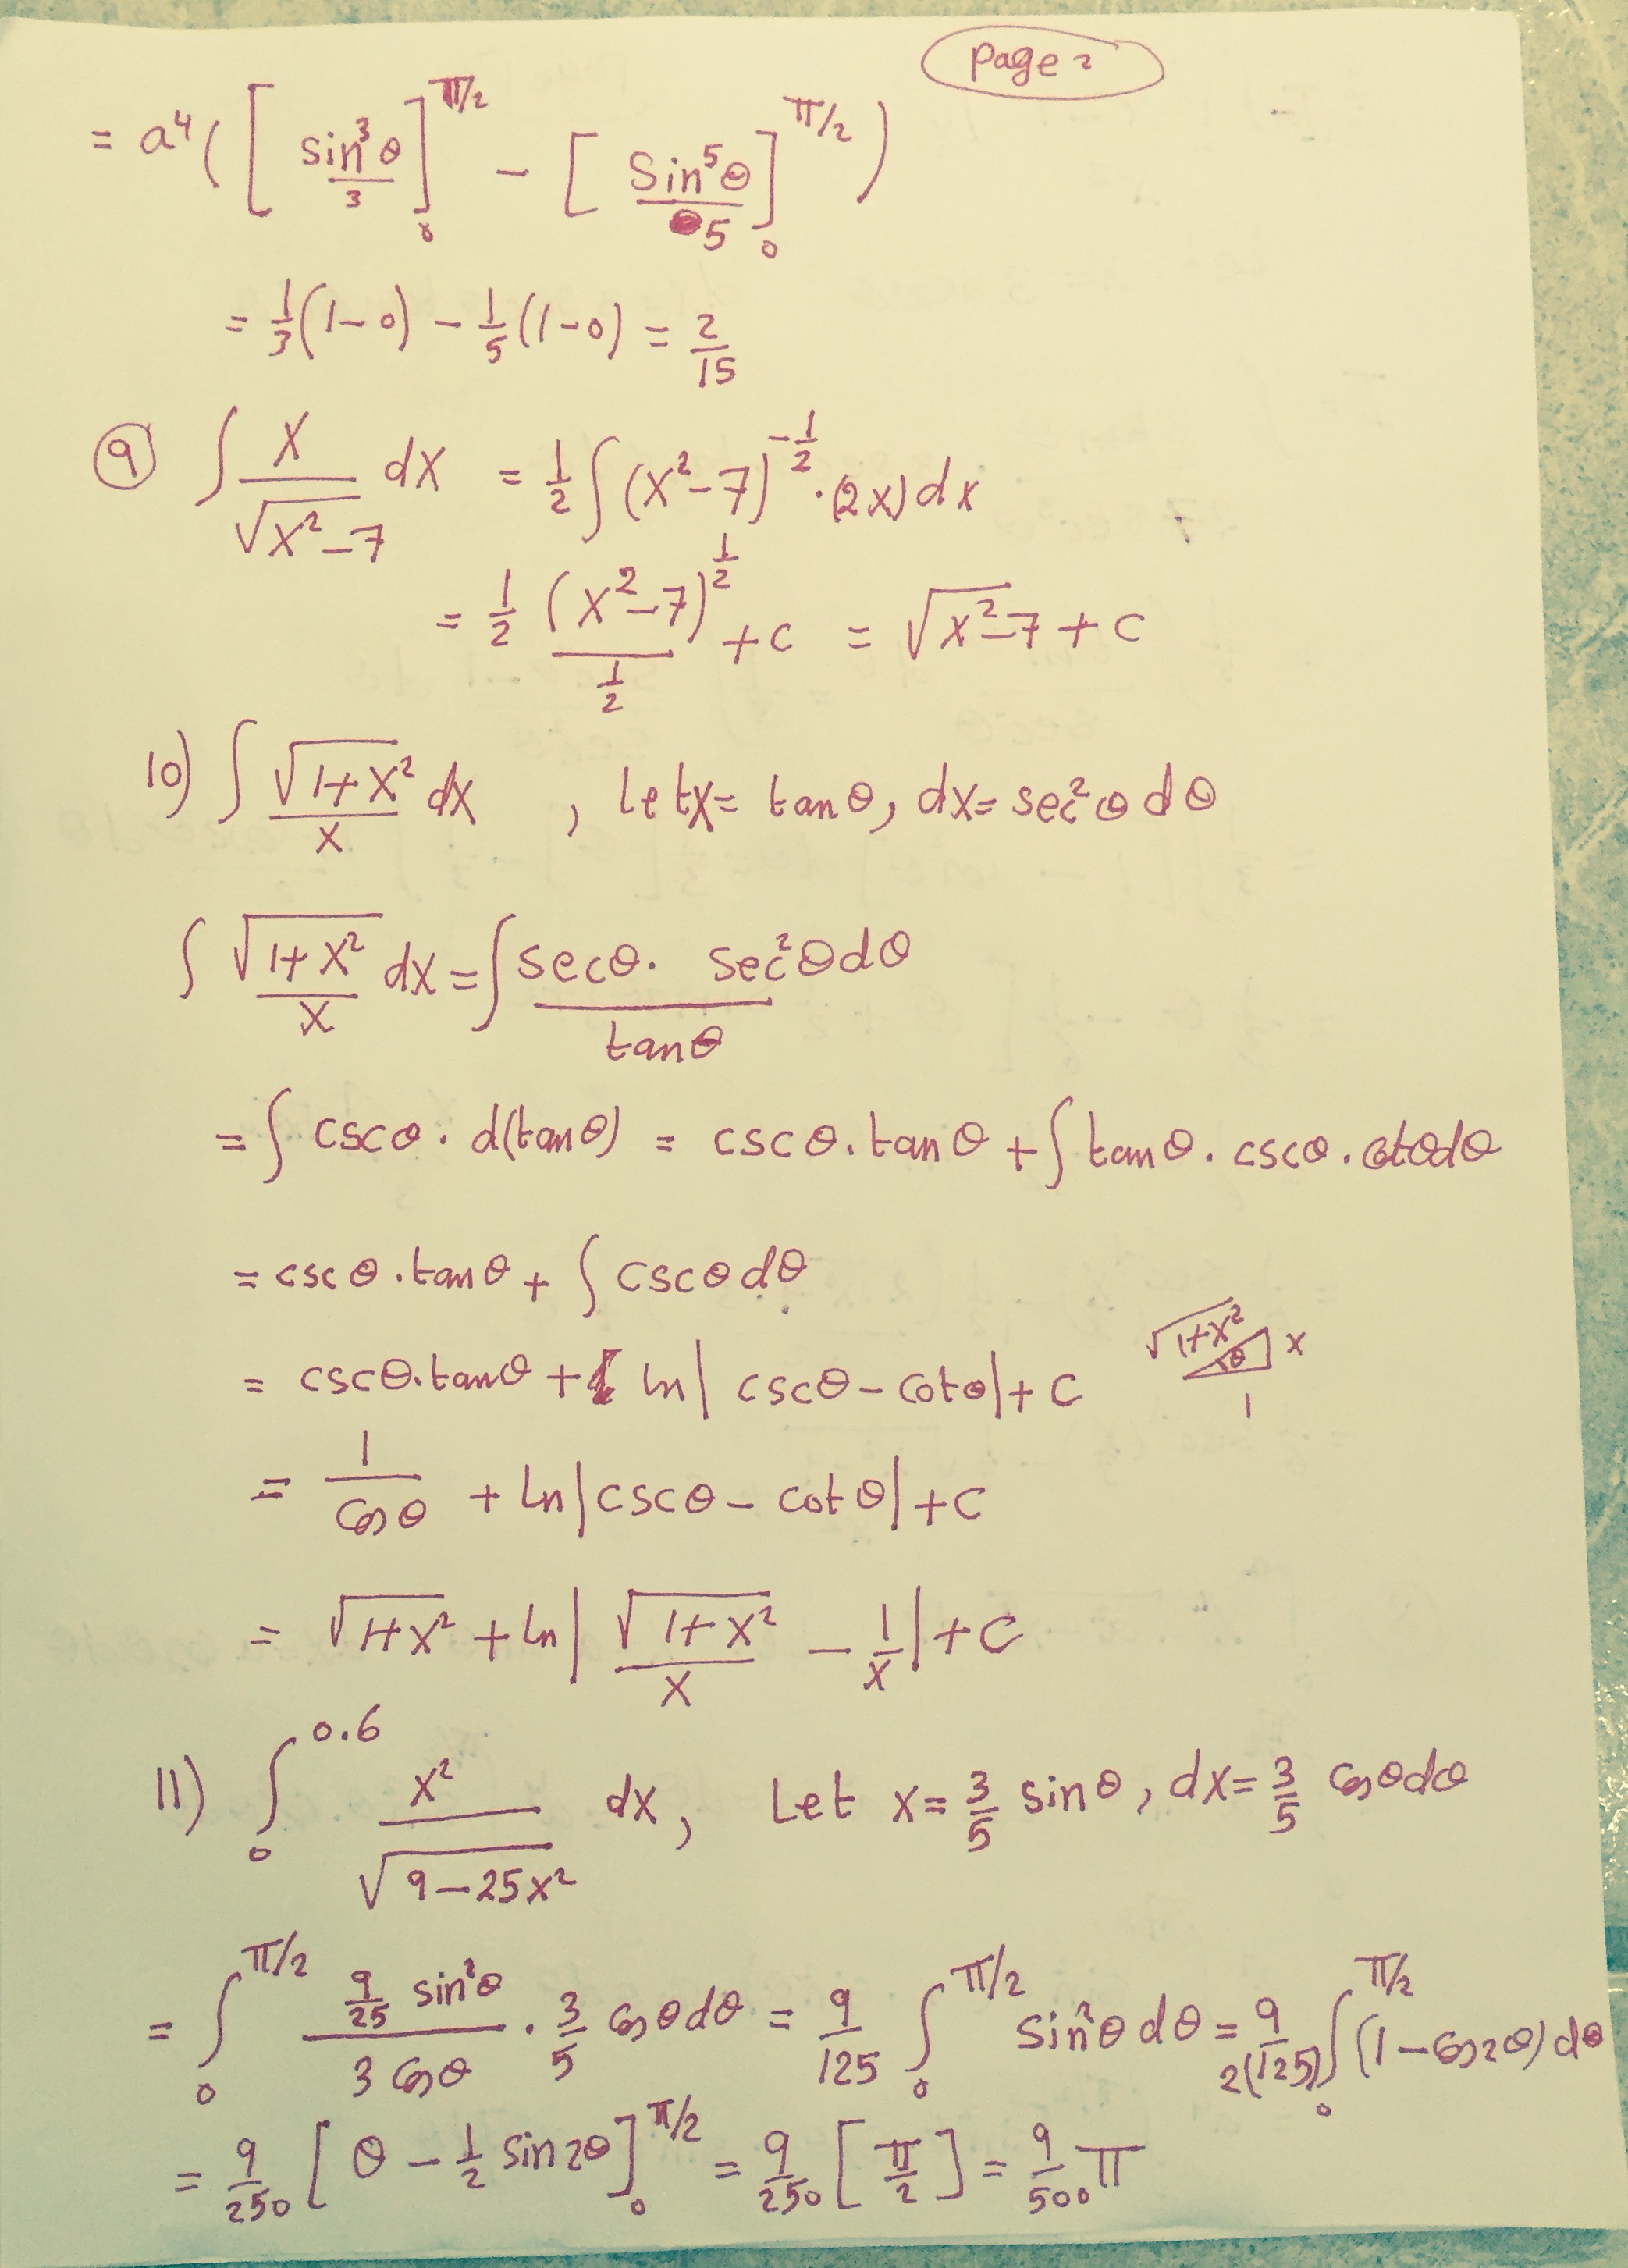 page 2
= a⁴ ( [ sin³θ / 3 ]₀^{π/2} − [ Sin⁵θ / 5 ]₀^{π/2} )
= 1/3 (1−0) − 1/5 (1−0) = 2/15
⑨ ∫ x/√(x²−7) dx = 1/2 ∫ (x²−7)^{−1/2} · (2x) dx
= 1/2 (x²−7)^{1/2} / (1/2) + c = √(x²−7) + c
10) ∫ √(1+x²)/x dx , Let x = tanθ, dx = sec²θ dθ
∫ √(1+x²)/x dx = ∫ secθ · sec²θ dθ / tanθ
= ∫ cscθ · d(tanθ) = cscθ · tanθ + ∫ tanθ · cscθ · cotθ dθ
= cscθ · tanθ + ∫ cscθ dθ
= cscθ · tanθ + ln | cscθ − cotθ | + c
√(1+x²) x
θ
1
= 1/cosθ + ln | cscθ − cotθ | + c
= √(1+x²) + ln | √(1+x²)/x − 1/x | + c
11) ∫₀^{0.6} x²/√(9−25x²) dx, Let x = 3/5 sinθ, dx = 3/5 cosθ dθ
= ∫₀^{π/2} (9/25 sin²θ)/(3 cosθ) · 3/5 cosθ dθ = 9/125 ∫₀^{π/2} sin²θ dθ = 9/2(125) ∫₀^{π/2} (1 − cos2θ) dθ
= 9/250 [ θ − 1/2 sin2θ ]₀^{π/2} = 9/250 [ π/2 ] = 9/500 π